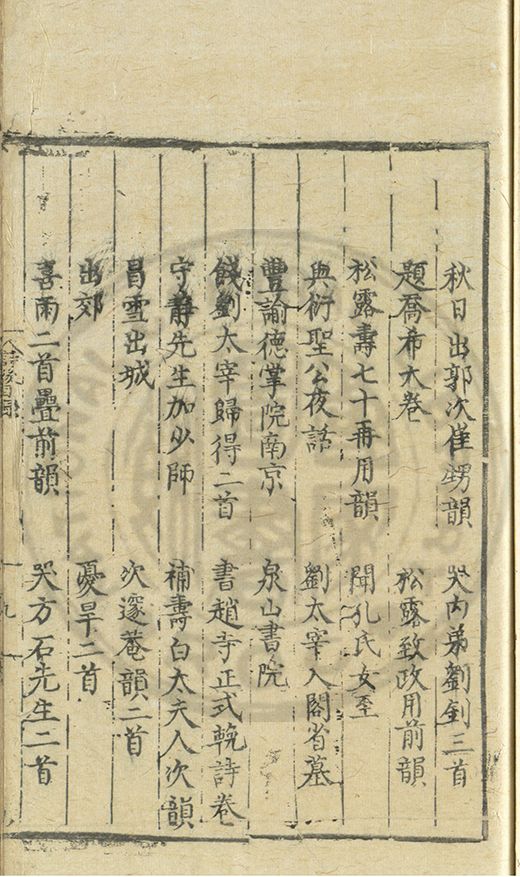 秋日出郭次崔甥韻 哭內弟劉釗三首
題喬希大卷 松露致政用前韻
松露壽七十再用韻 聞孔氏女至
與衍聖公夜話 劉太宰入閣省墓
豐諭德掌院南京 泉山書院
餞劉太宰歸得二首 書趙寺正式輓詩卷
守靜先生加少師 補壽白太夫人次韻
冒雪出城 次邃菴韻二首
出郊 憂旱二首
喜雨二首疊前韻 哭方石先生二首